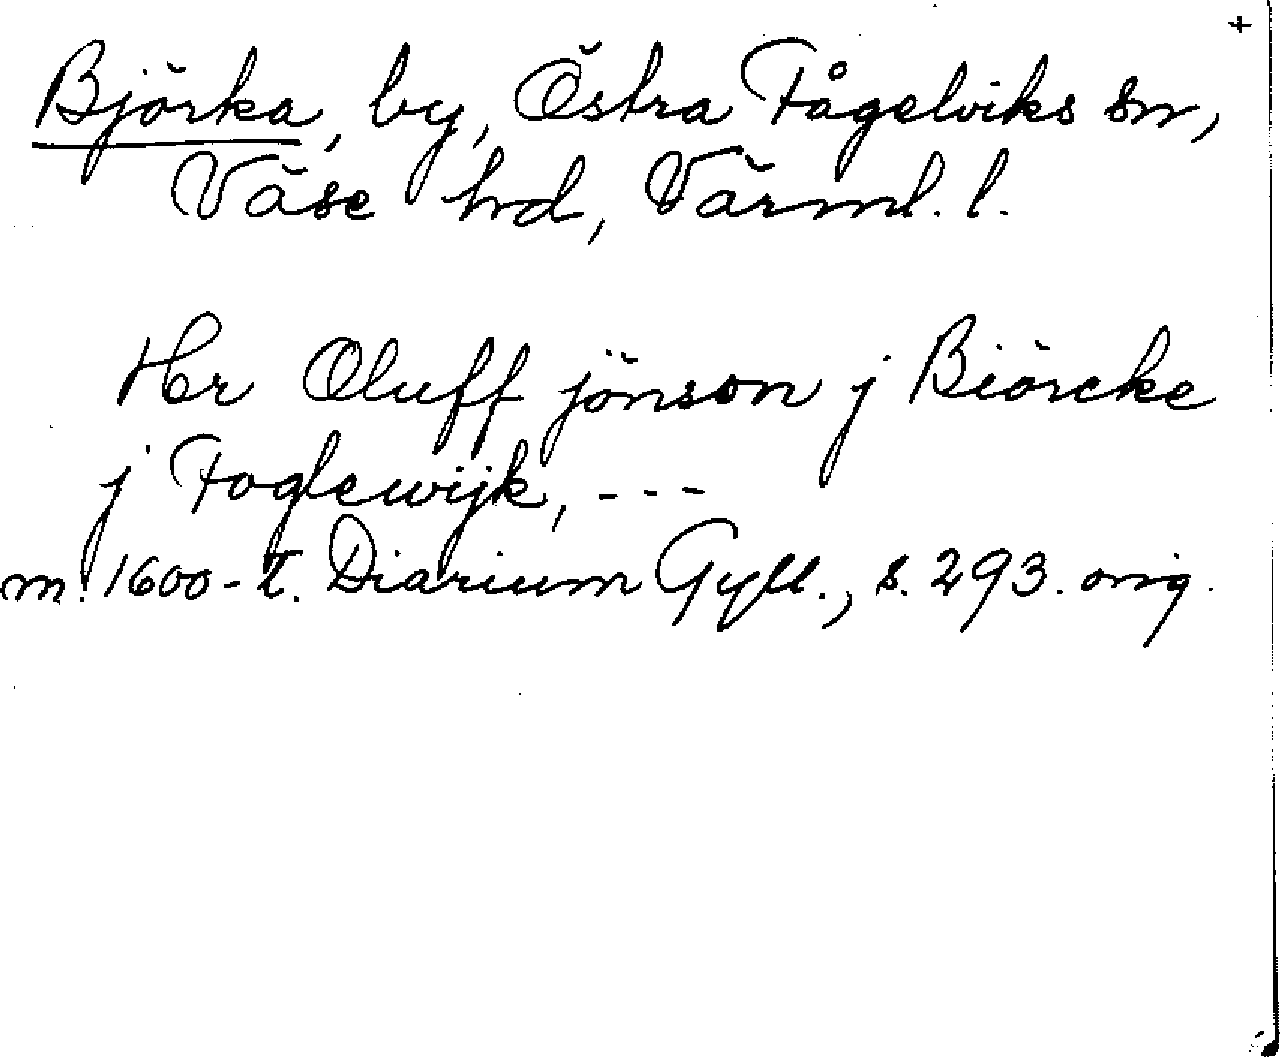 +
Björka, by, Östra Fågelviks sn,
Väse hd, Värml. l.
Hr Oluff jönson j Biörcke
j Foglewijk, ---
m. 1600-t. Diarium Gyll., s. 293. orig.